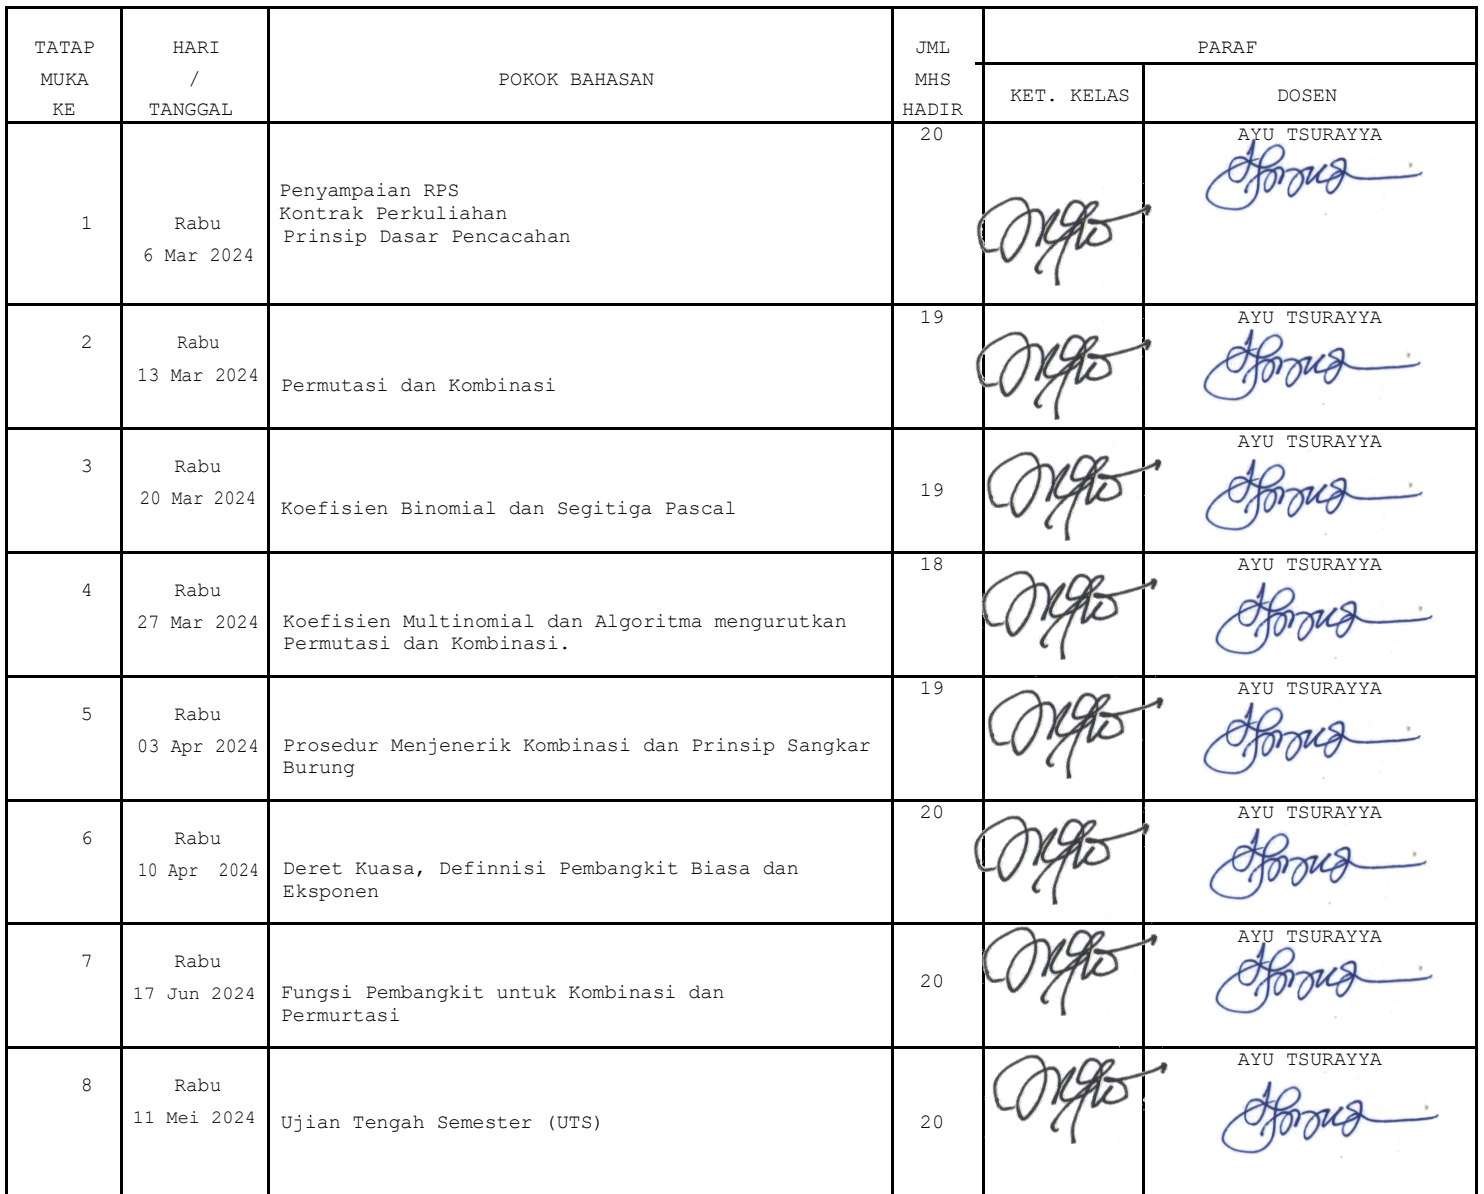 TATAP MUKA KE
HARI / TANGGAL
POKOK BAHASAN
JML MHS HADIR
PARAF
KET. KELAS
DOSEN
1
Rabu
6 Mar 2024
Penyampaian RPS
Kontrak Perkuliahan
Prinsip Dasar Pencacahan
20
AYU TSURAYYA
2
Rabu
13 Mar 2024
Permutasi dan Kombinasi
19
AYU TSURAYYA
3
Rabu
20 Mar 2024
Koefisien Binomial dan Segitiga Pascal
19
AYU TSURAYYA
4
Rabu
27 Mar 2024
Koefisien Multinomial dan Algoritma mengurutkan
Permutasi dan Kombinasi.
18
AYU TSURAYYA
5
Rabu
03 Apr 2024
Prosedur Menjenerik Kombinasi dan Prinsip Sangkar
Burung
19
AYU TSURAYYA
6
Rabu
10 Apr 2024
Deret Kuasa, Definnisi Pembangkit Biasa dan
Eksponen
20
AYU TSURAYYA
7
Rabu
17 Jun 2024
Fungsi Pembangkit untuk Kombinasi dan
Permurtasi
20
AYU TSURAYYA
8
Rabu
11 Mei 2024
Ujian Tengah Semester (UTS)
20
AYU TSURAYYA